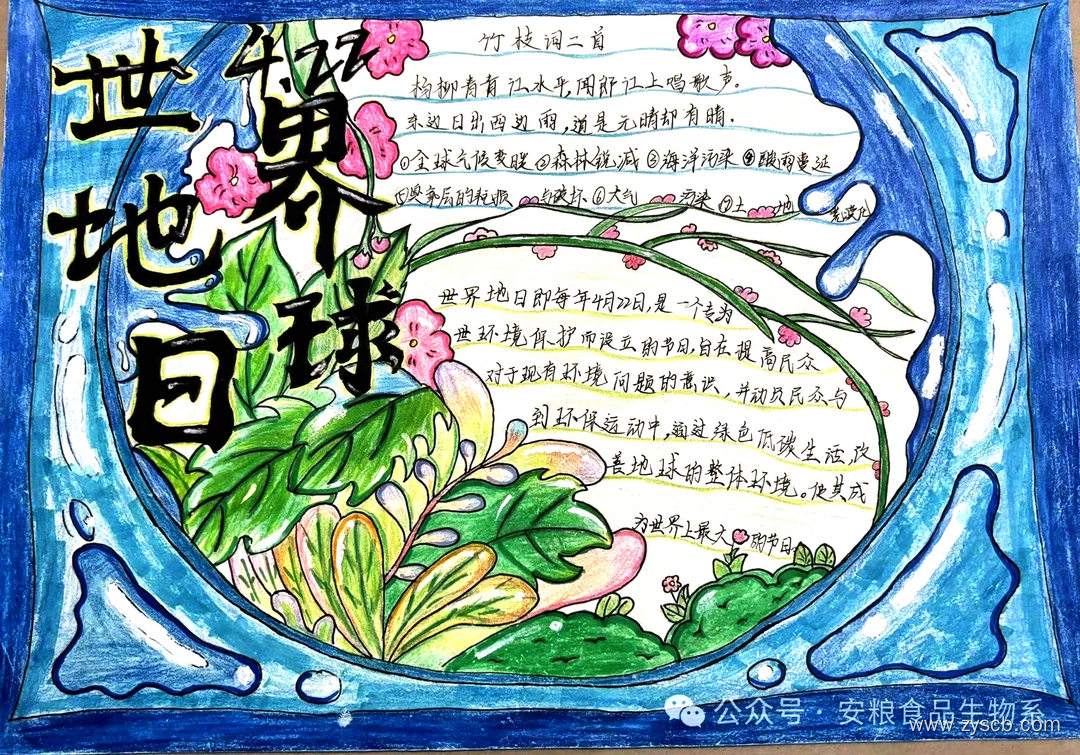 4.22
世界地球日
竹枝词二首
杨柳青青江水平,闻郎江上唱歌声.
东边日出西边雨,道是无晴却有晴.
①全球气候变暖②森林锐减③海洋污染④酸雨蔓延
与破坏⑥大气污染⑦土地荒漠化
世界地日即每年4月22日,是一个专为
世环境保护而设立的节日,旨在提高民众
对于现有环境问题的意识,并动员民众与
到环保运动中,通过绿色低碳生活,改
善地球的整体环境。使其成
为世界上最大的节日。
公众号·安粮食品生物系
www.zyscb.com